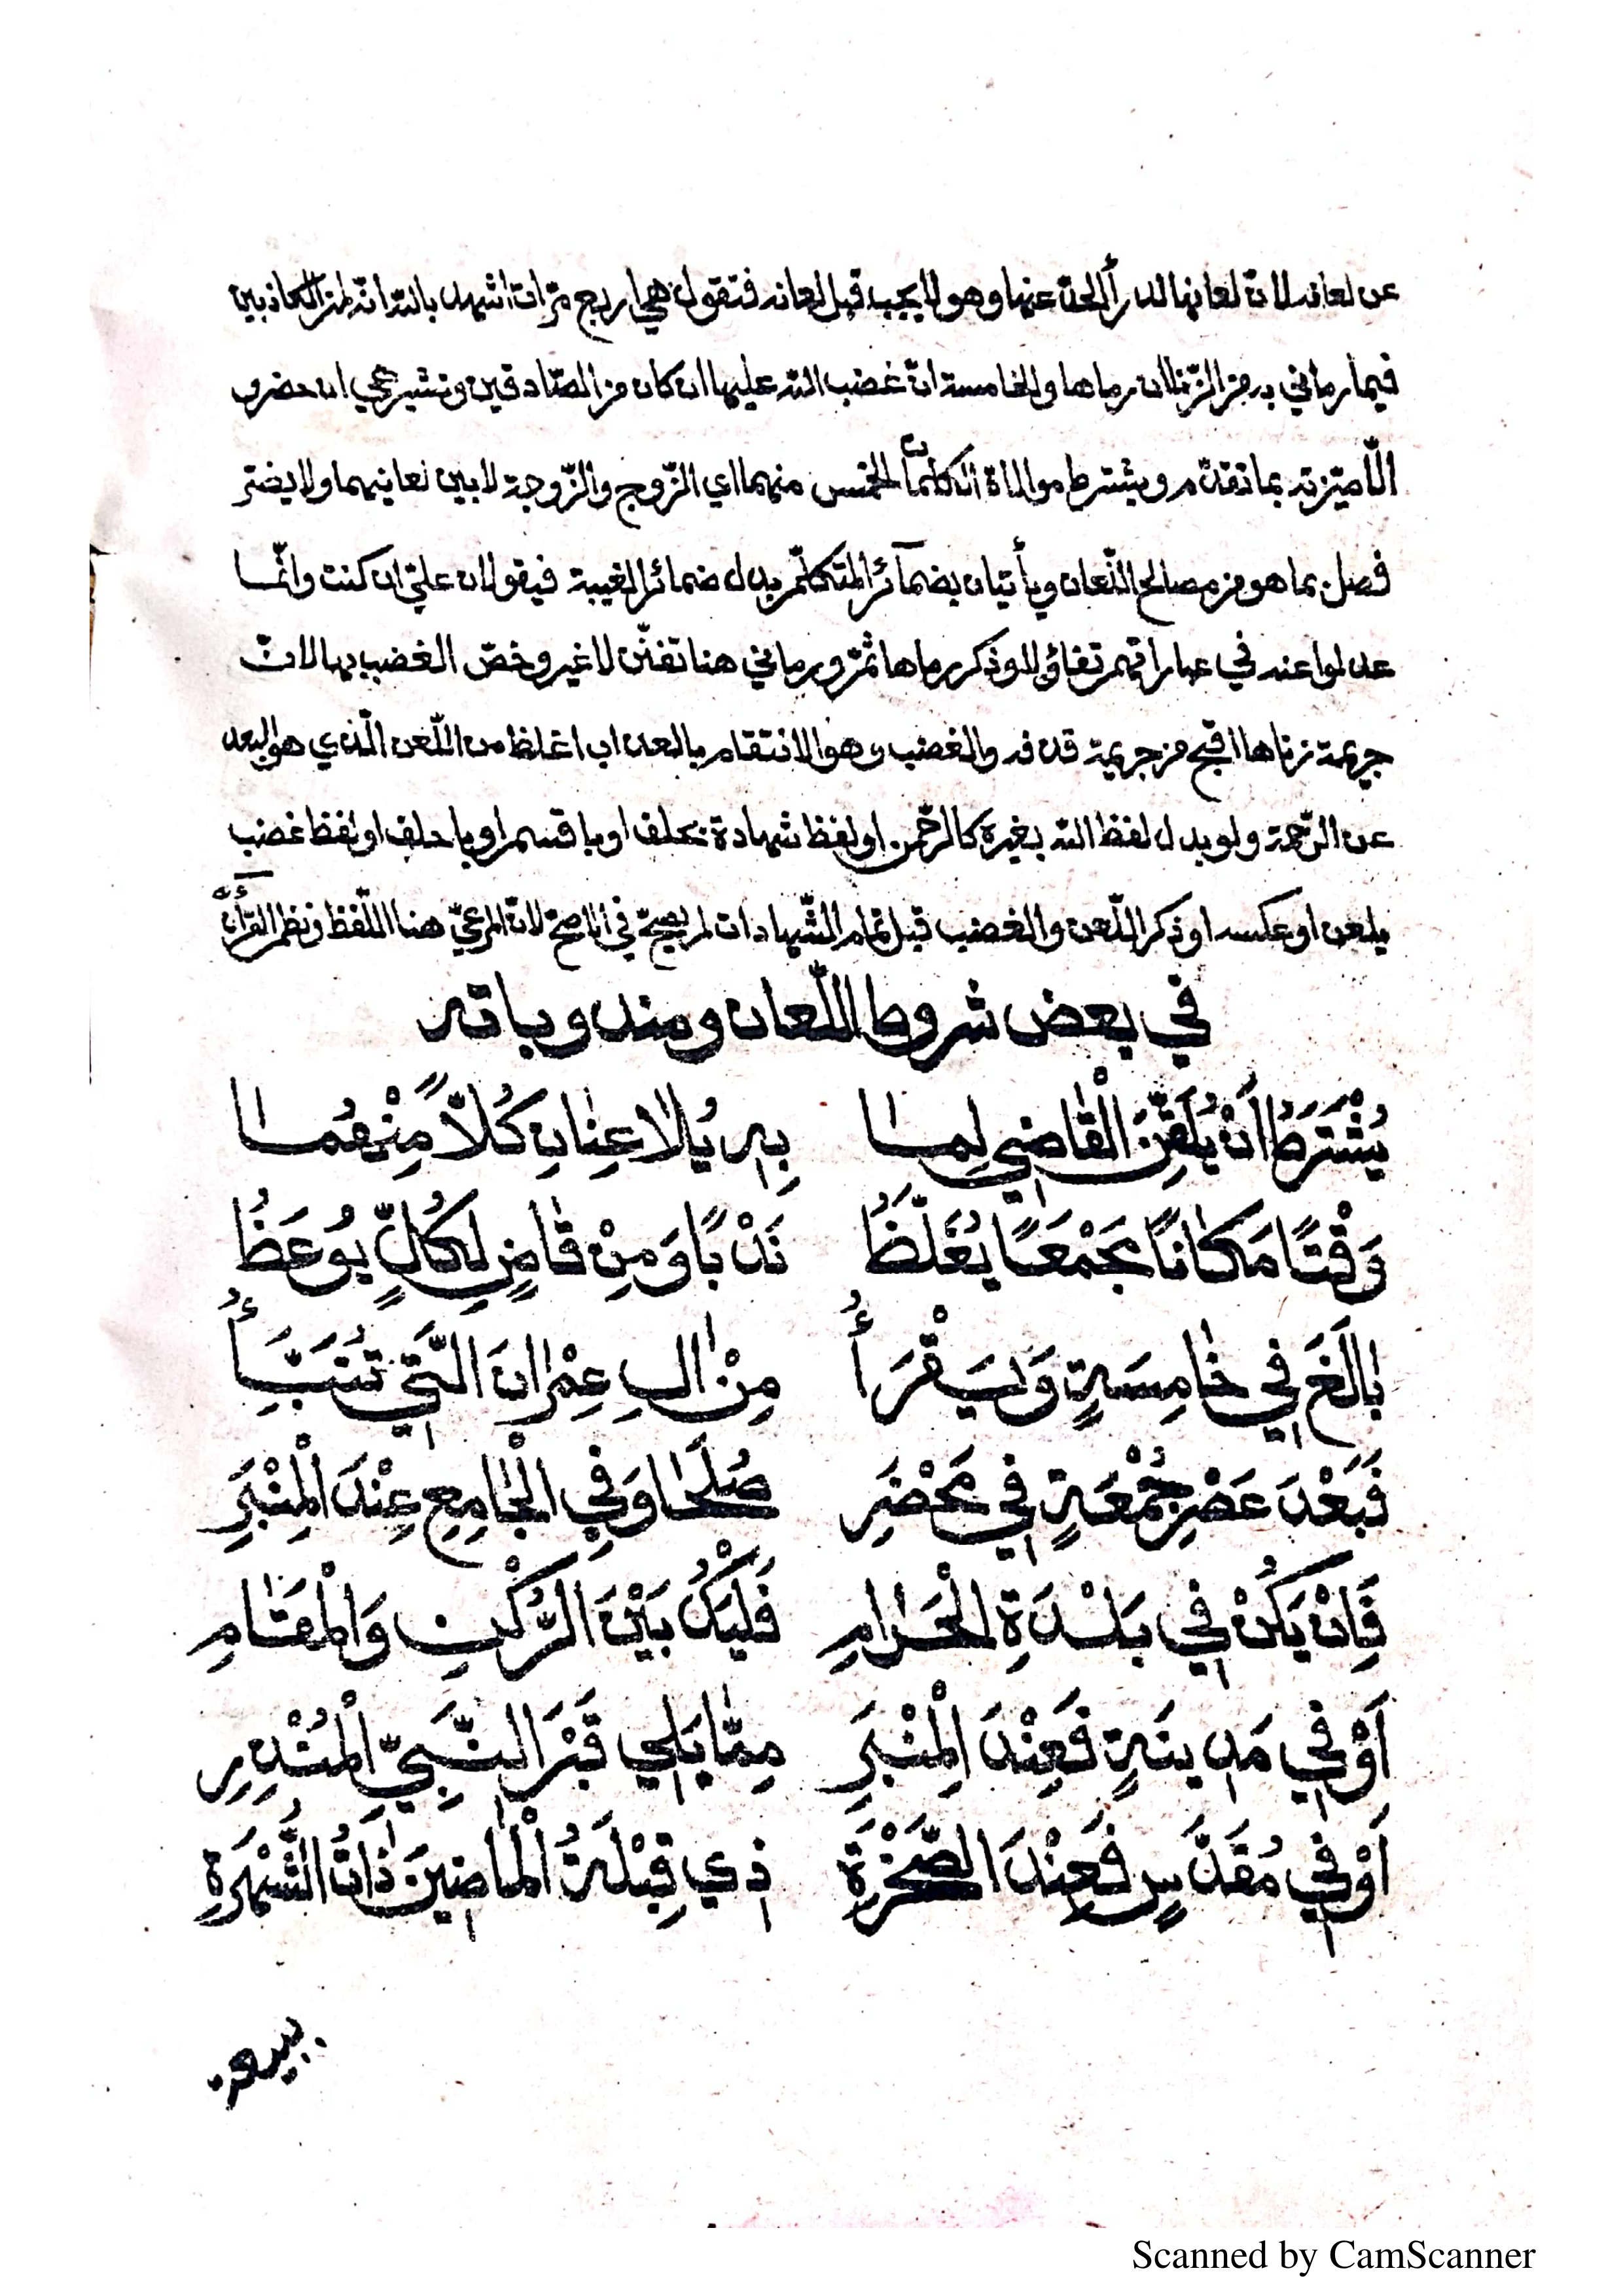 عن لعانه لان لعانها لدرأ الحد عنها وهو لا يجب قبل لعانه فتقول هي اربع مرّات اشهد بالله انّه لمن الكاذبين
فيما رماني به من الزّنا ان رماها والخامسة انّ غضب الله عليها ان كان من الصّادقين وتشير هي ان حضر و
الّا ميّزته بما تقدّم ويشترط موالاة الكلمات الخمس منهما اي الزّوج والزّوجة لا بين لعانيهما ولا يضرّ
فصل بما هو من مصالح اللّعان ويأتيان بضمآئر المتكلّم بدل ضمائر الغيبة فيقولان عليّ ان كنت وانّما
عدلوا عنه في عباراتهم تفاؤلا وذكر رماها ثمّ ورماني هنا تفنّن لا غير وخصّ الغضب بها لانّ
جريمة زناها اقبح من جريمة قذفه والغضب وهو الانتقام بالعذاب اغلظ من اللّعن الّذي هو البعد
عن الرّحمة ولو بدل لفظ الله بغيره كالرّحمن او لفظ شهادة بحلف او باقسم او باحلف او لفظ غضب
بلعن او عكسه او ذكر اللّعن والغضب قبل تمام الشّهادات لم يصحّ في الاصحّ لانّ المرعيّ هنا اللّفظ ونظم القرآن
في بعض شروط اللّعان ومندوباته
يُشْتَرَطُ اَنْ يُلَقِّنَ الْقَاضِي لِمَا بِهِ يُلَاعِنَانِ كُلًّا مِّنْهُمَا
وَقْتًا مَكَانًا مَجْمَعًا يُغَلَّظُ نَدْبًا وَمِنْ قَاضٍ لِكُلٍّ يُوعَظُ
بَالَغَ فِي خَامِسَةٍ وَلْيَقْرَأُ مِنْ اٰلِ عِمْرَانَ الَّتِي تُنَبِّأُ
فَبَعْدَ عَصْرِ جُمْعَةٍ فِي مَحْضَرِ صُلَحَا وَفِي الْجَامِعِ عِنْدَ الْمِنْبَرِ
فَاِنْ يَكُنْ فِي بَلْدَةِ الْحَرَامِ فَلْيَكُ بَيْنَ الرُّكْنِ وَالْمَقَامِ
اَوْ فِي مَدِينَةٍ فَعِنْدَ الْمِنْبَرِ مِمَّا يَلِي قَبْرَ النَّبِيِّ الْمُنْذِرِ
اَوْ فِي مُقَدَّسٍ فَعِنْدَ الصَّخْرَةِ ذِي قِبْلَةُ الْمَاضِينَ ذَاتُ الشُّهْرَةِ
Scanned by CamScanner